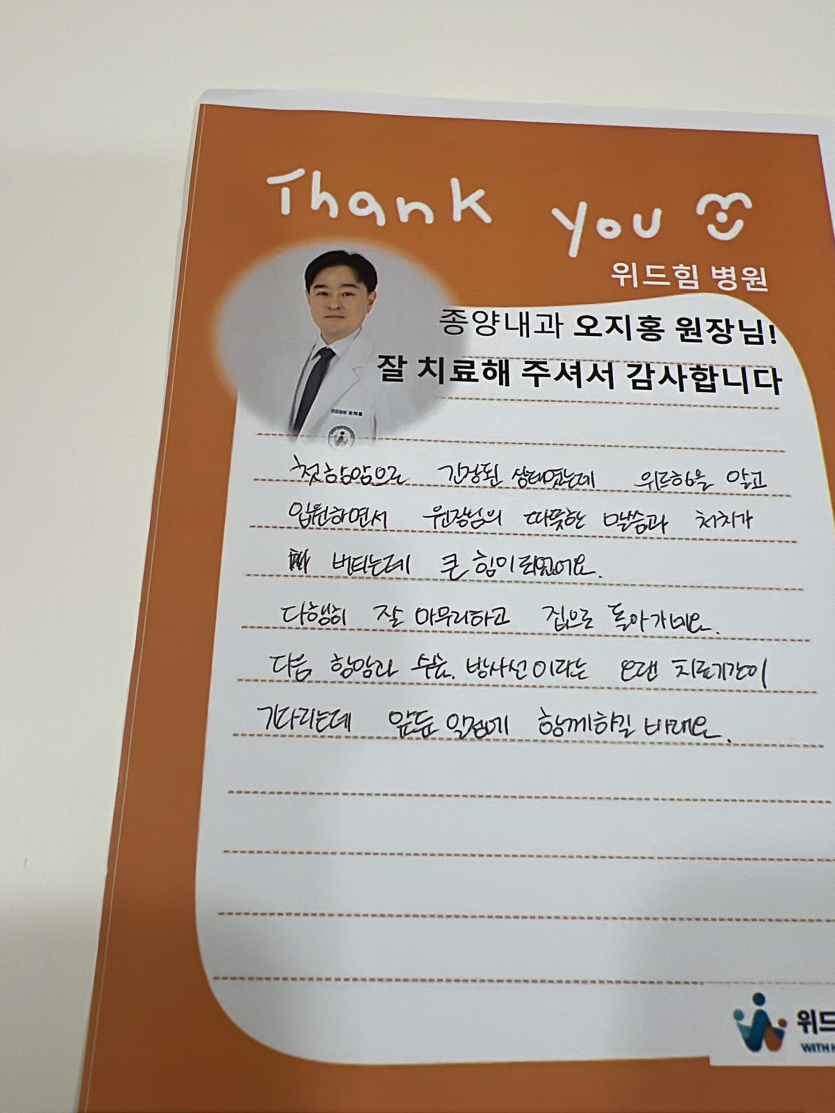 Thank you
위드힘 병원
종양내과 오지홍 원장님!
잘 치료해 주셔서 감사합니다
첫항암으로 긴장된 상태였는데 위드힘을 알고
입원하면서 원장님의 따뜻한 말씀과 처치가
버티는데 큰 힘이 되었어요.
다행히 잘 마무리하고 집으로 돌아가네요.
다음 항암과 수술. 방사선이라는 오랜 치료기간이
기다리는데 앞으로 일정에 함께하길 바래요.
위드
WITH H